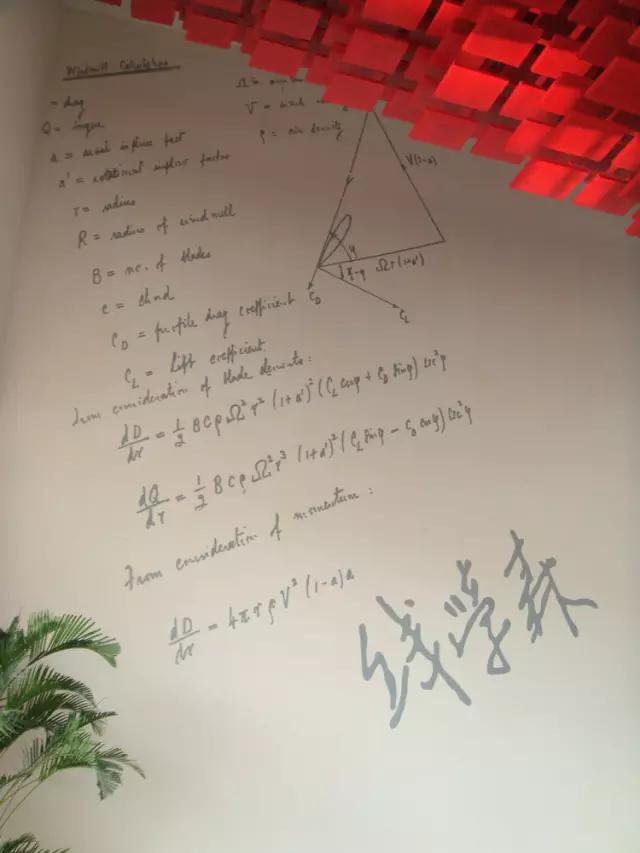 Windmill Calculation
= drag
Q = torque
a = axial inflow fact
a' = rotational inflow factor
r = radius
R = radius of windmill
B = no. of blades
c = chord
C_D = profile drag coefficient
C_L = Lift coefficient
Ω =
V = wind
ρ = air density
V(1-a)
φ
Ωr(1+a')
C_D
C_L
From consideration of blade elements:
dD/dr = 1/2 B c ρ Ω² r² (1+a')² (C_L cosφ + C_D sinφ) sec²φ
dQ/dr = 1/2 B c ρ Ω² r³ (1+a')² (C_L sinφ - C_D cosφ) sec²φ
From consideration of momentum:
dD/dr = 4π r ρ V² (1-a) a
钱学森